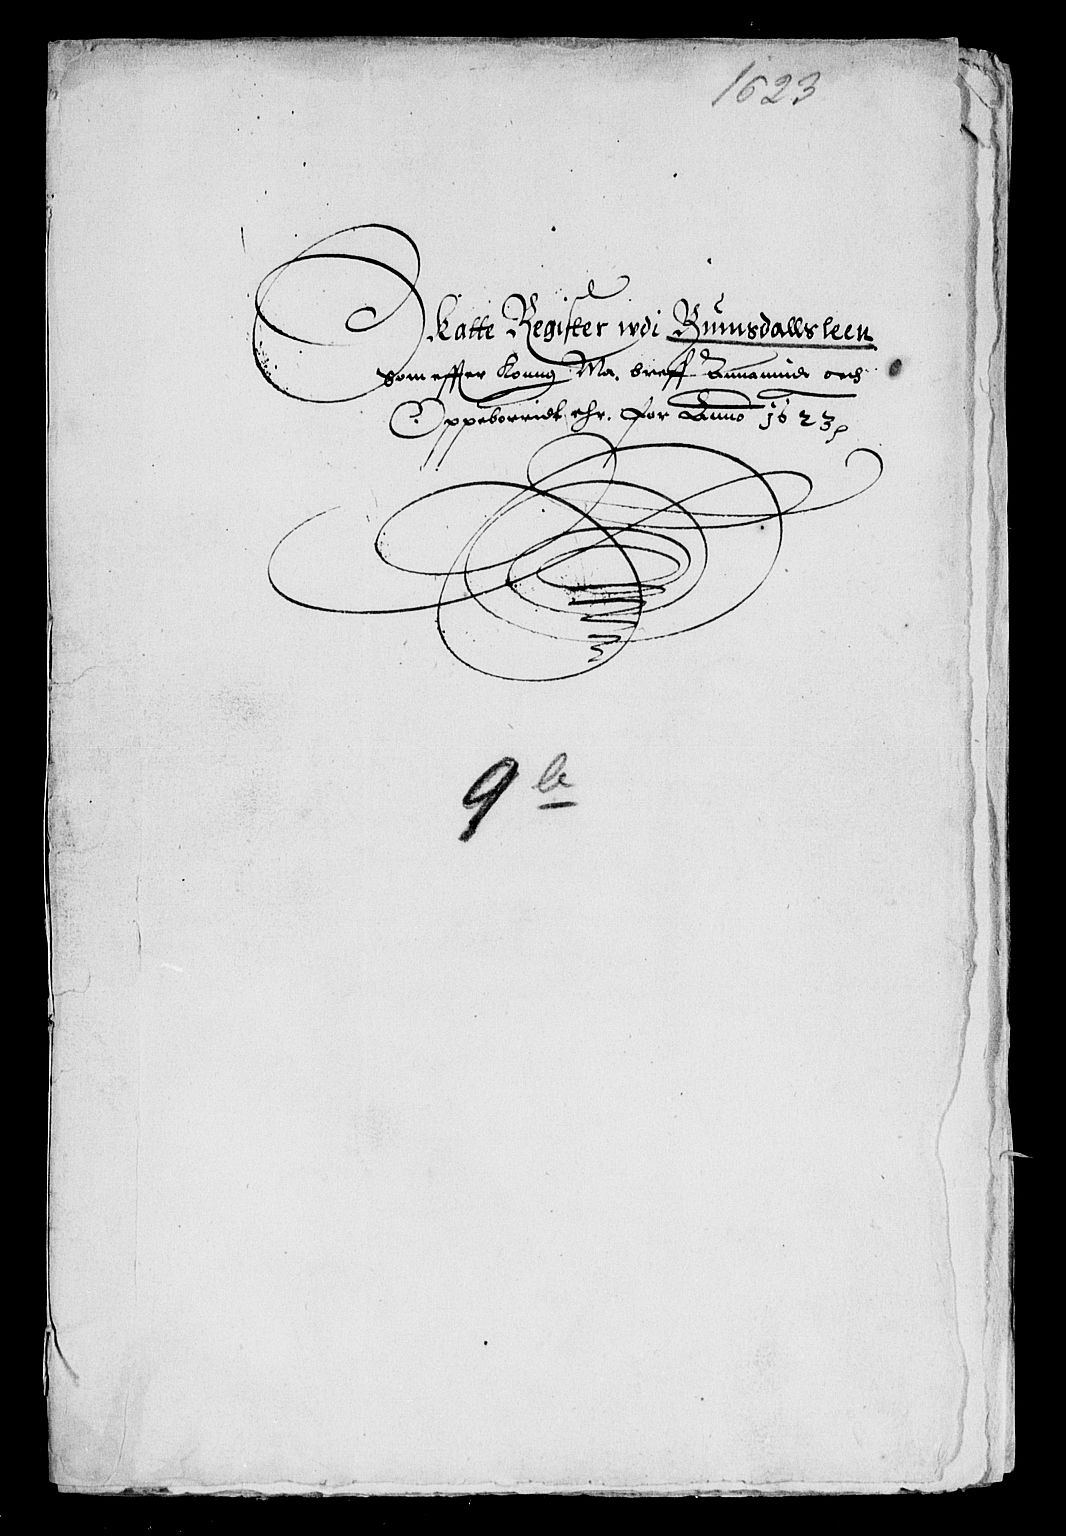 1623
Skatte Register wdi Rumsdallsleen
som effter Konng Ma. breff Annamidt och
Oppeborridt ehr. for Anno 1623
9 b